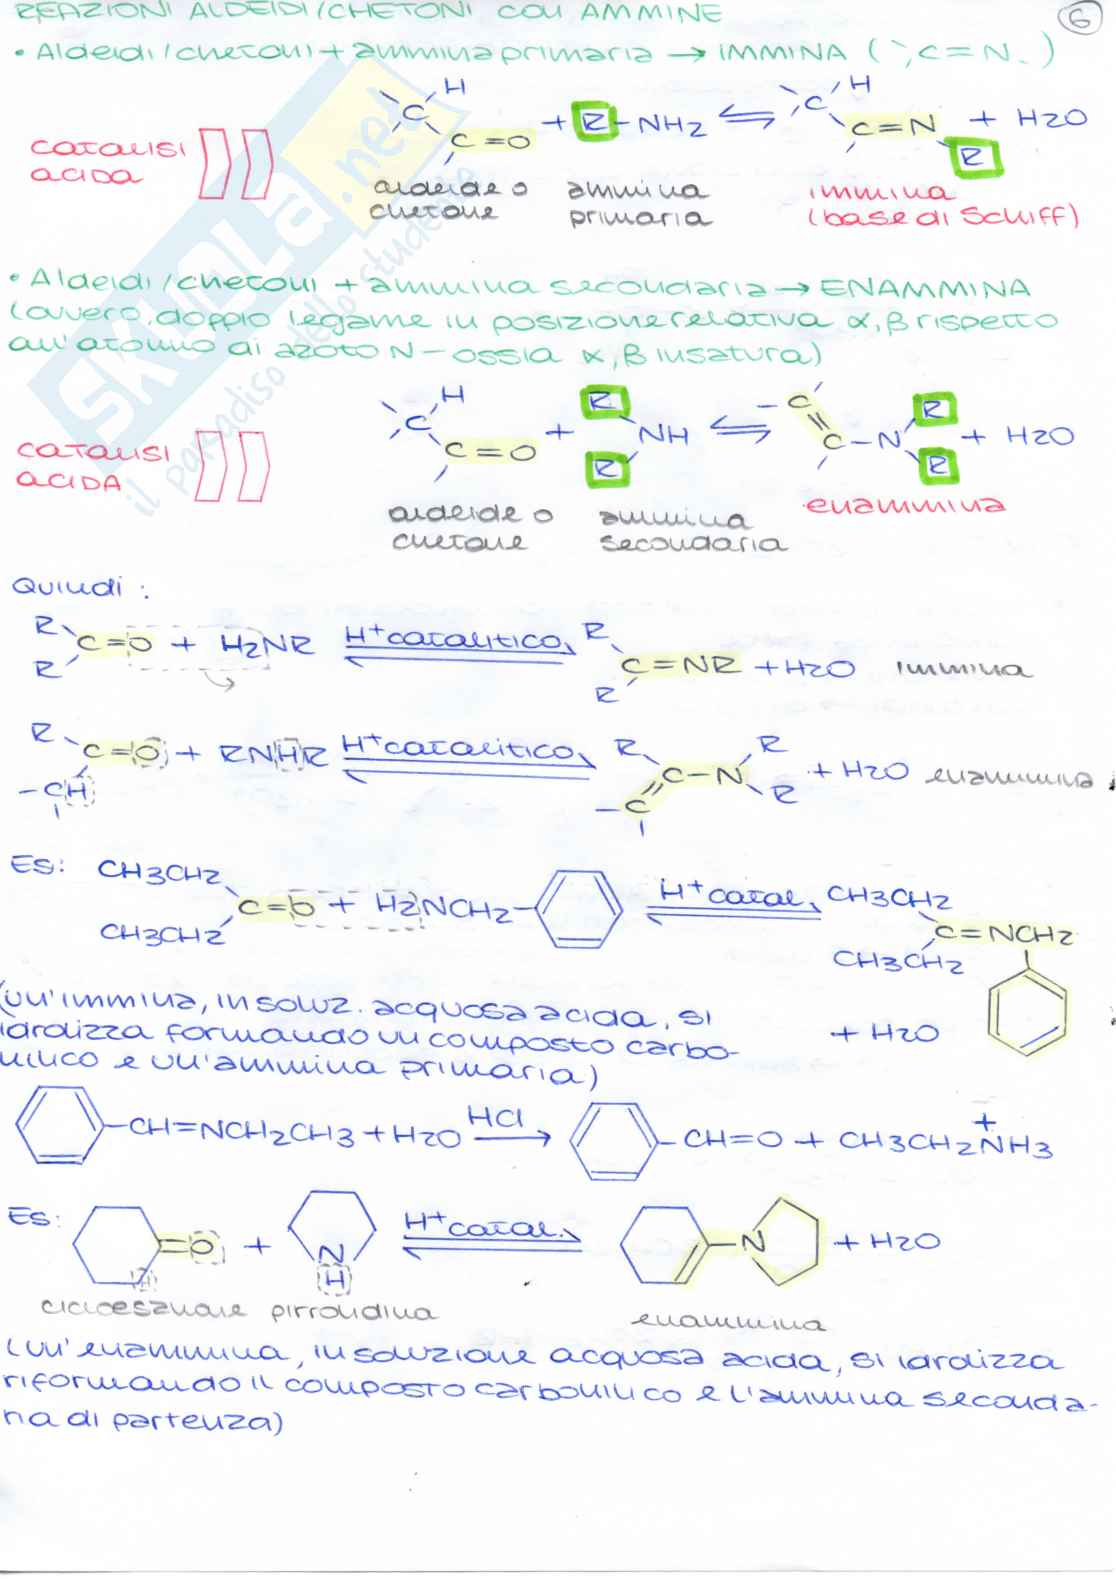 REAZIONI ALDEIDI/CHETONI CON AMMINE
6
• Aldeidi/chetoni + ammina primaria → IMMINA ( >C=N- )
CATALISI ACIDA
H
C
C=O + R-NH2 ⇌ C=N + H2O
R
aldeide o chetone
ammina primaria
immina (base di Schiff)
• Aldeidi/chetoni + ammina secondaria → ENAMMINA
(ovvero, doppio legame in posizione relativa α,β rispetto
all'atomo di azoto N - ossia α,β insatura)
CATALISI ACIDA
H
C
C=O + R NH R ⇌ C=C-N R R + H2O
aldeide o chetone
ammina secondaria
enammina
Quindi :
R R C=O + H2NR H+ catalitico R R C=NR + H2O immina
R -CH C=O + RNHR H+ catalitico R C-N R R C + H2O enammina
Es: CH3CH2 CH3CH2 C=O + H2NCH2- H+ catal. CH3CH2 CH3CH2 C=NCH2
+ H2O
(un'immina, in soluz. acquosa acida, si
idrolizza formando un composto carbo-
nilico e un'ammina primaria)
-CH=NCH2CH3 + H2O HCl → -CH=O + CH3CH2NH3 +
Es: =O H + N H H+ catal. N + H2O
cicloesanone pirrolidina
enammina
(un'enammina, in soluzione acquosa acida, si idrolizza
riformando il composto carbonilico e l'ammina seconda-
ria di partenza)
SKUOLA.net
il paradiso dello studente